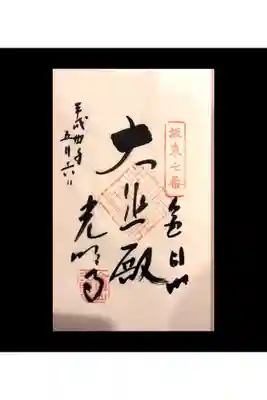 坂東七番
金目山
大悲殿
光明寺
平成卅年
五月十六日